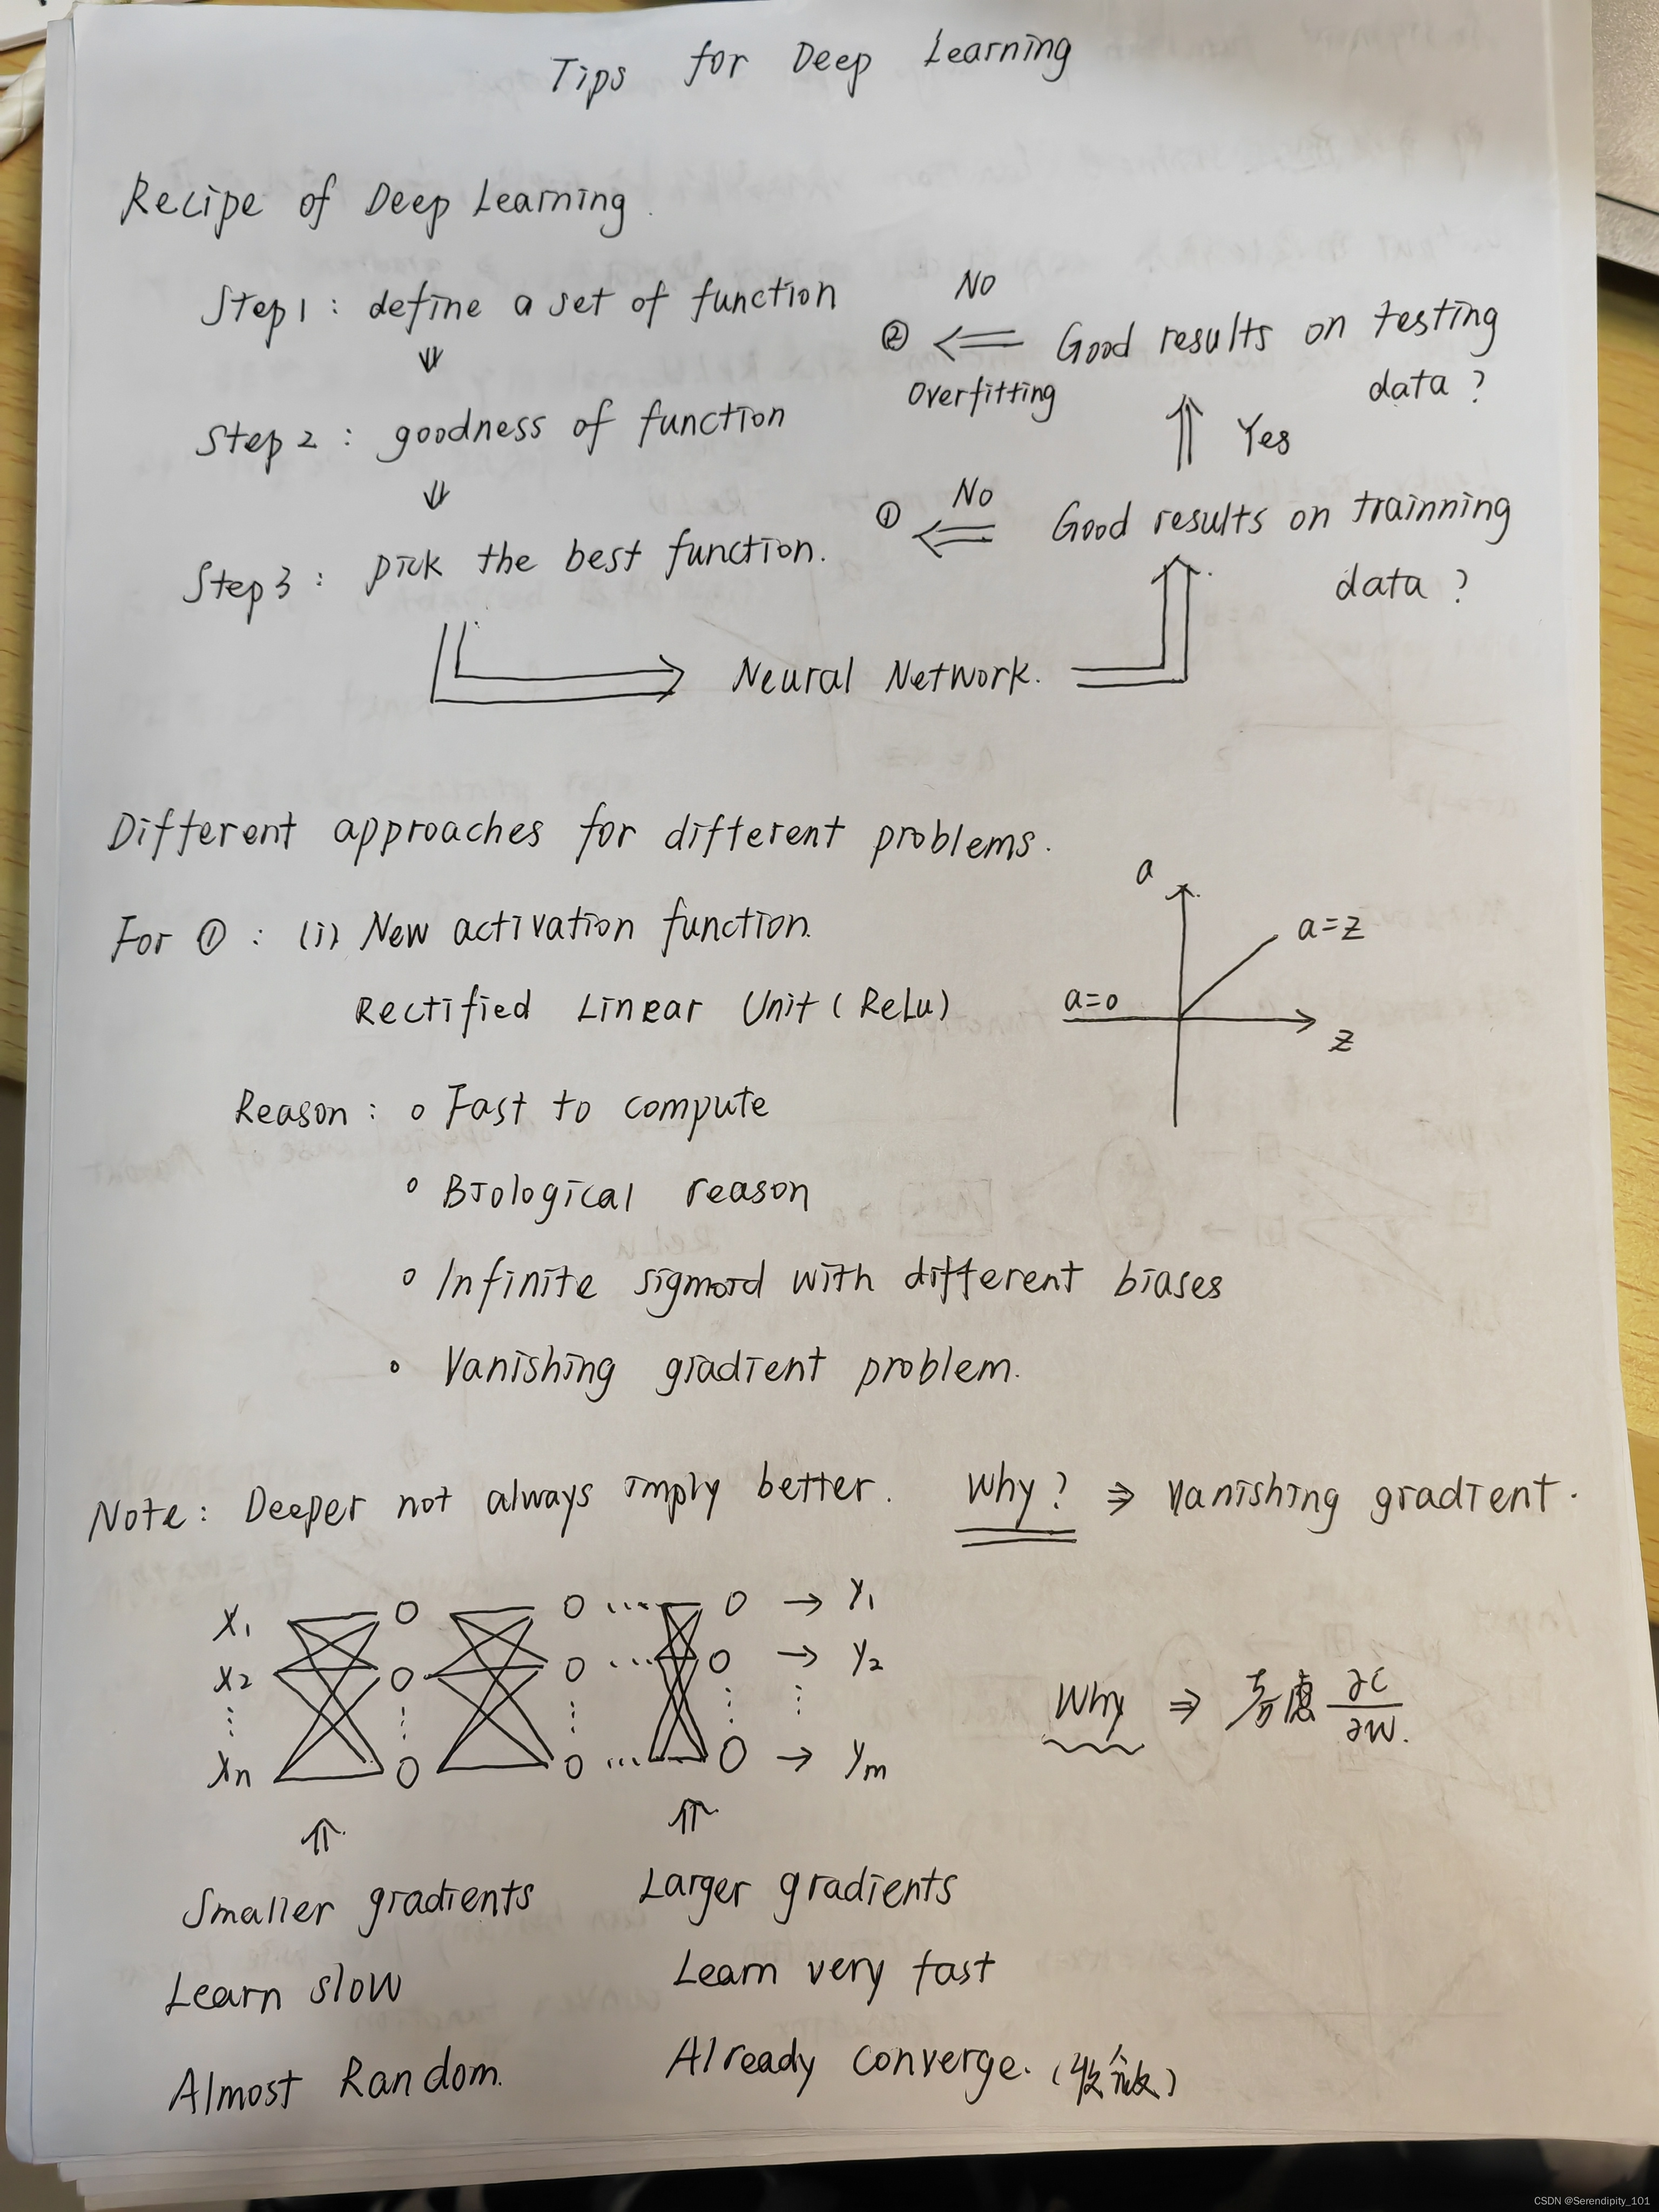 Tips for Deep Learning
Recipe of Deep Learning.
Step1 : define a set of function
⇓
Step 2 : goodness of function
⇓
Step3 : pick the best function.
Neural Network.
Good results on trainning
data ?
① ⇐ No
⇑ Yes
Good results on testing
data ?
② ⇐ No
Overfitting
Different approaches for different problems.
For ① : (i) New activation function.
Rectified Linear Unit (ReLu)
a
a=z
a=0
z
Reason : ○ Fast to compute
○ Biological reason
○ Infinite sigmoid with different biases
○ Vanishing gradient problem.
Note: Deeper not always imply better. Why? ⇒ Vanishing gradient.
x₁ ... → y₁
x₂ ... → y₂
⋮ ⋮ ⋮ ⋮ ⋮
xn ... → ym
Why ⇒ 考虑 ∂C/∂w.
⇑ ⇑
Smaller gradients Larger gradients
Learn slow Learn very fast
Almost Random. Already converge. (收敛)
CSDN @Serendipity_101